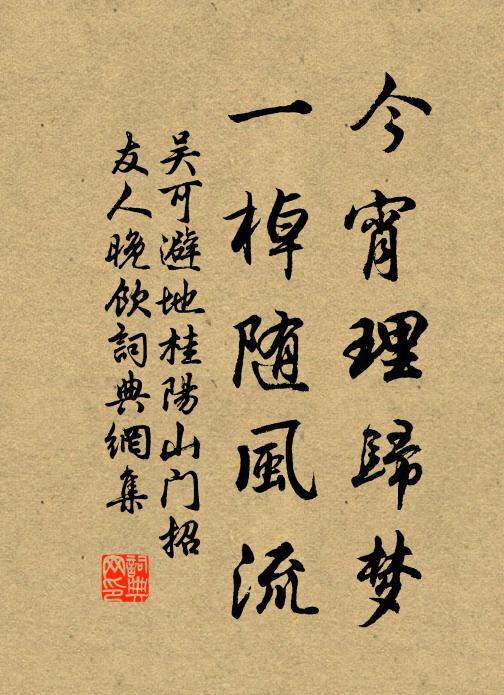 今宵理歸梦
一棹随風流
吴可避地桂陽山门招
友人晚饮詞典網集
詞典网印